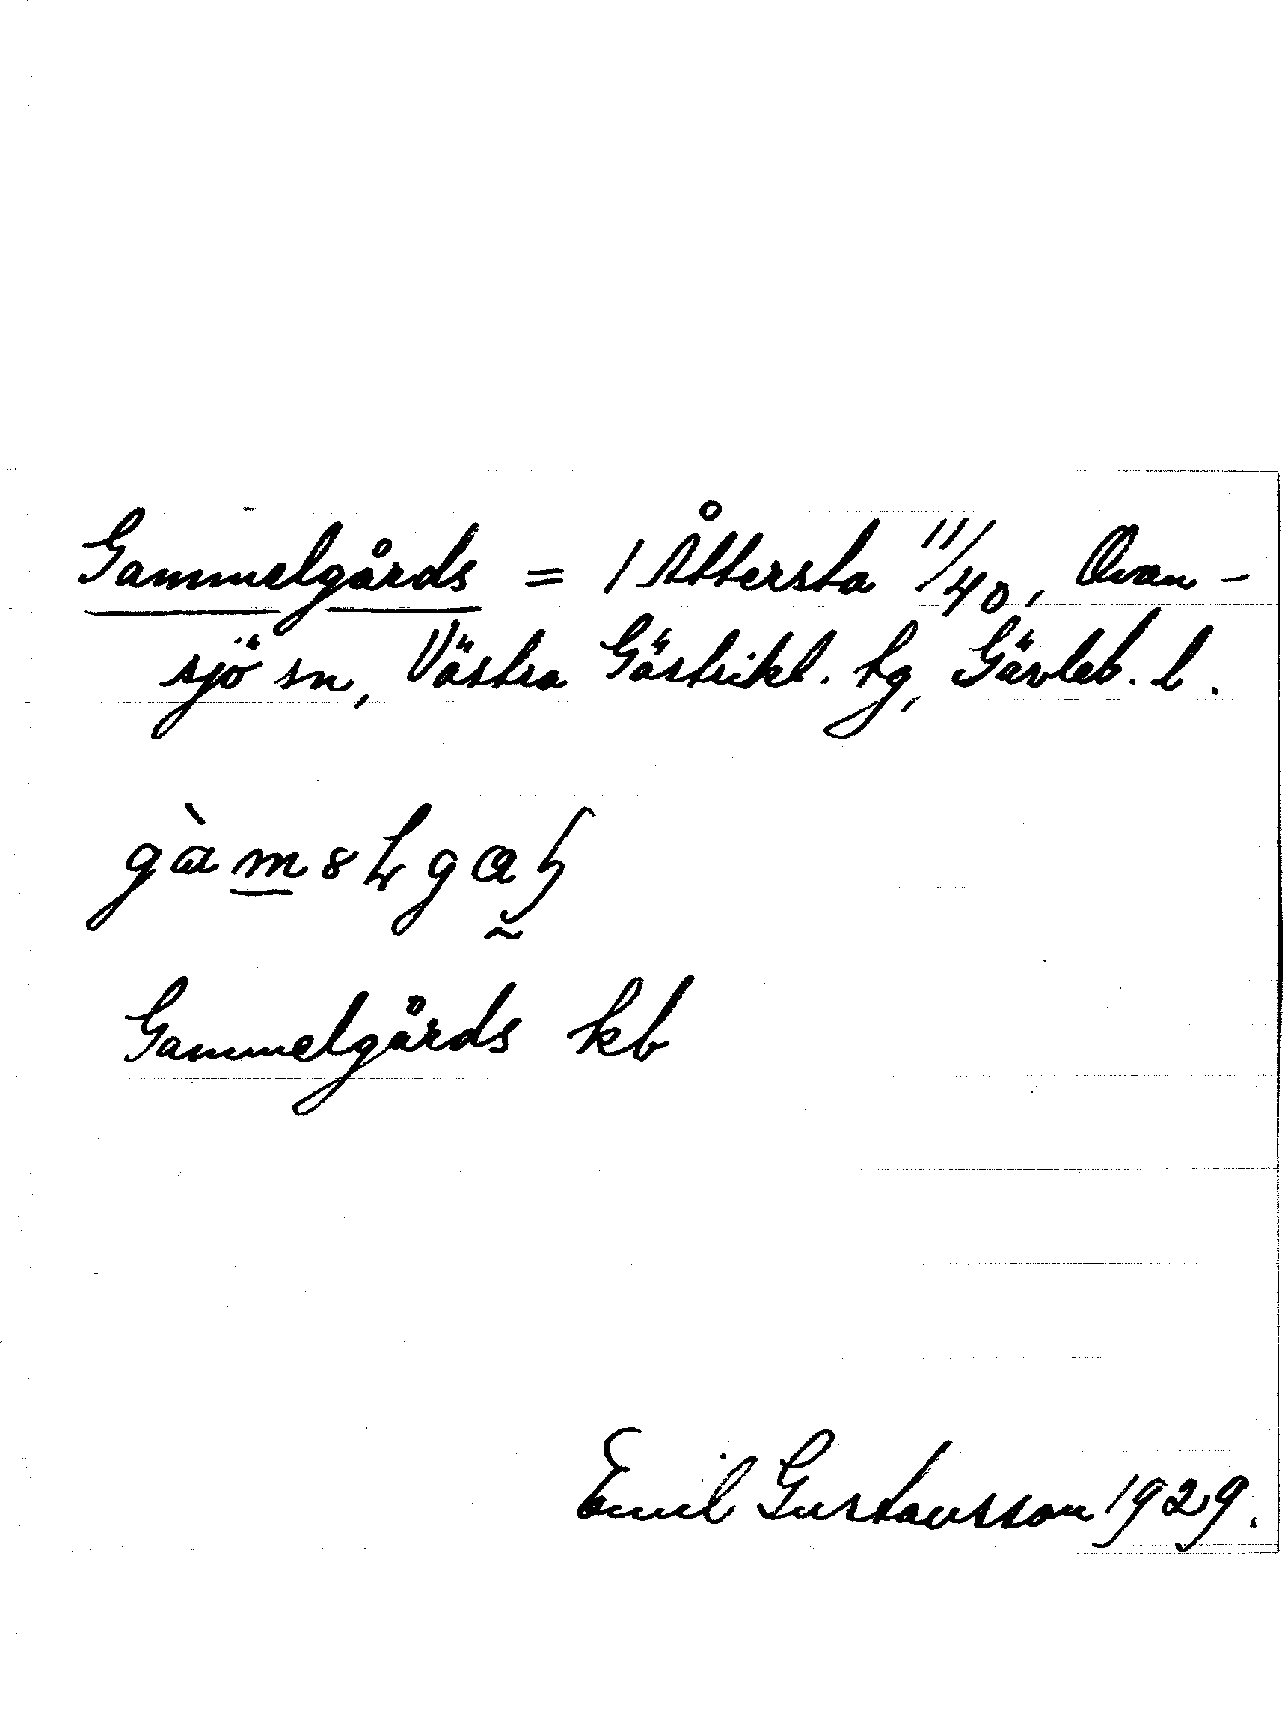 Gammelgårds = 1 Åttersta 11/40, Ovan-
sjö sn, Västra Gästrikl. tg, Gävleb. l.
Gammelgårds kb
Emil Gustavsson 1929.